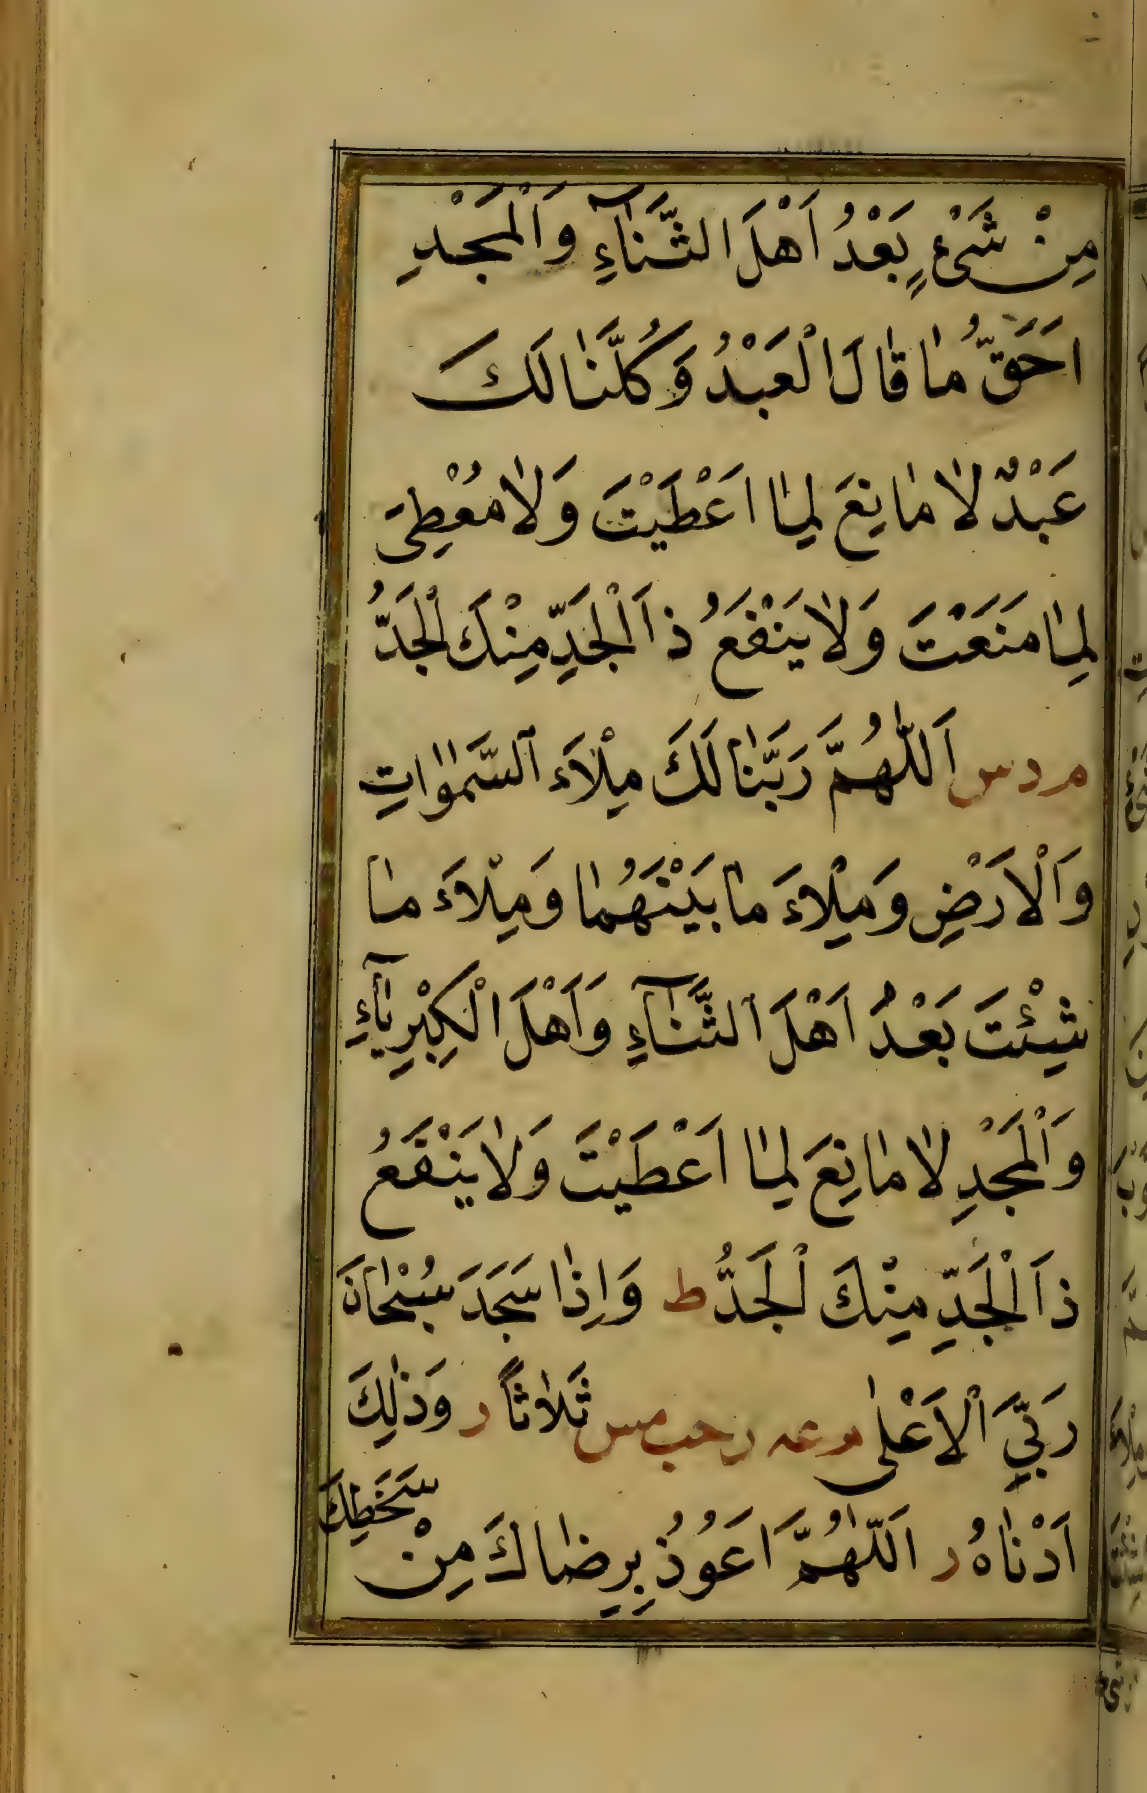 مِنْ شَىْءٍ بَعْدُ اَهْلَ الثَّنَآءِ وَالْمَجْدِ
اَحَقُّ مَا قَالَ الْعَبْدُ وَكُلُّنَا لَكَ
عَبْدٌ لَا مَانِعَ لِمَا اَعْطَيْتَ وَلَا مُعْطِىَ
لِمَا مَنَعْتَ وَلَا يَنْفَعُ ذَا الْجَدِّ مِنْكَ الْجَدُّ
م د س اَللّٰهُمَّ رَبَّنَا لَكَ مِلْاَءَ السَّمٰوَاتِ
وَالْاَرْضِ وَمِلْاَءَ مَا بَيْنَهُمَا وَمِلْاَءَ مَا
شِئْتَ بَعْدُ اَهْلَ الثَّنَآءِ وَاَهْلَ الْكِبْرِيَآءِ
وَالْمَجْدِ لَا مَانِعَ لِمَا اَعْطَيْتَ وَلَا يَنْفَعُ
ذَا الْجَدِّ مِنْكَ الْجَدُّ ط وَاِذَا سَجَدَ سُبْحَانَ
رَبِّىَ الْاَعْلٰى م عه ر حب مس ثَلَاثًا ر وَذٰلِكَ
اَدْنَاهُ ر اَللّٰهُمَّ اَعُوذُ بِرِضَاكَ مِنْ سَخَطِكَ